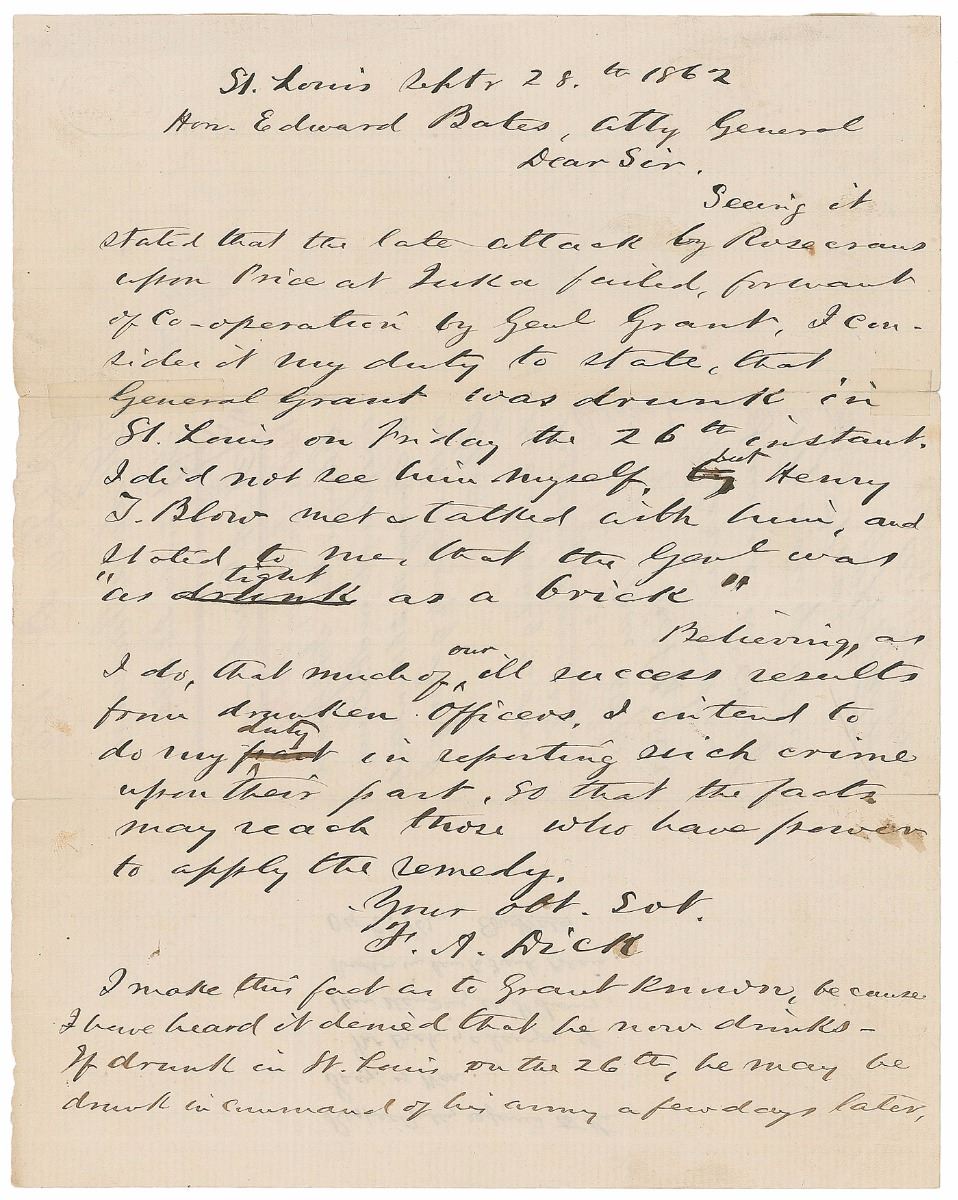 St. Louis Septr 28.th 1862
Hon. Edward Bates, Atty General
Dear Sir.
Seeing it
stated that the late attack by Rosecrans
upon Price at Iuka failed, for want
of Co-operation by Genl Grant, I con-
sider it my duty to state, that
General Grant was drunk in
St. Louis on Friday the 26th instant.
I did not see him myself, by but Henry
T. Blow met & talked with him, and
stated to me, that the Genl was
"as drunk tight as a brick"
Believing, as
I do, that much of our ill success results
from drunken Officers, I intend to
do my part duty in reporting such crime
upon their part, so that the facts
may reach those who have power
to apply the remedy.
Your obt. Svt.
F. A. Dick
I make this fact as to Grant known, because
I have heard it denied that he now drinks -
If drunk in St. Louis on the 26th, he may be
drunk in command of his army a few days later,